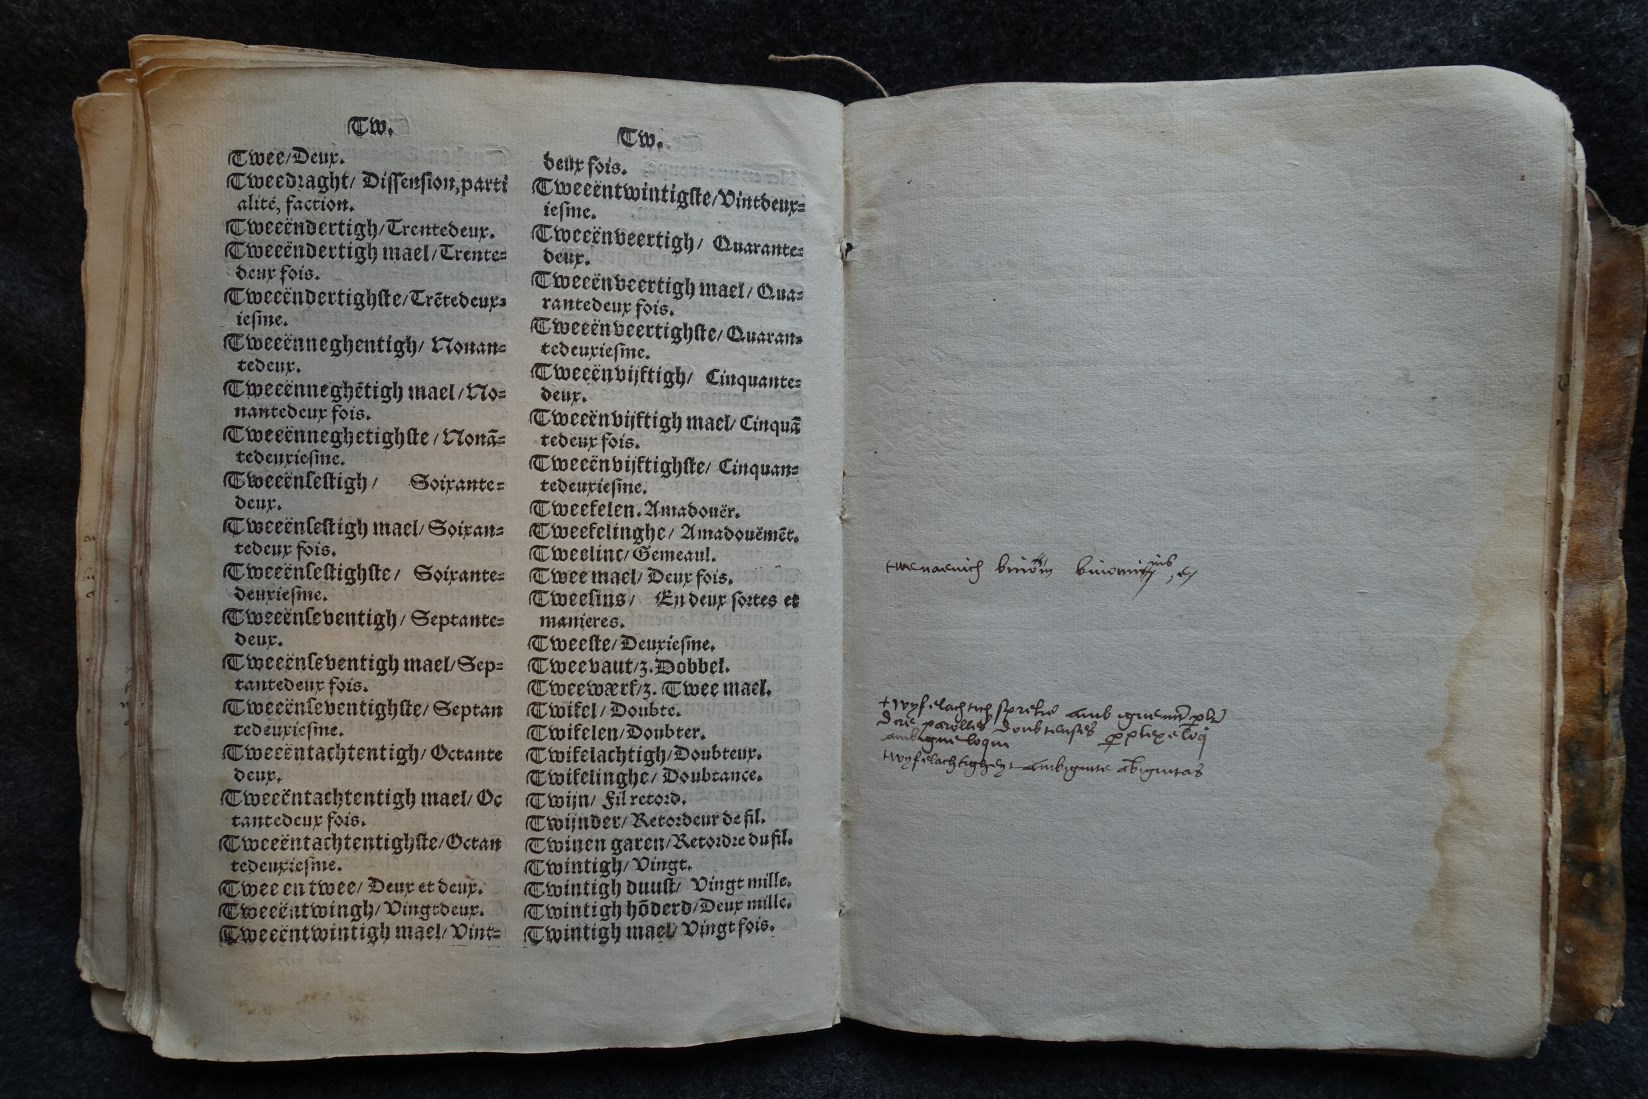 Tw.
Twee/Deux.
Tweedraght/ Dissension, parti
alité, faction.
Tweeëndertigh/Trentedeux.
Tweeëndertigh mael/Trente=
deux fois.
Tweeëndertighste/Trẽtedeux=
iesme.
Tweeënneghentigh/ Nonan=
tedeux.
Tweeënneghẽtigh mael/No=
nantedeux fois.
Tweeënneghetighste/Nonã=
tedeuxiesme.
Tweeënsestigh/ Soixante=
deux.
Tweeënsestigh mael/Soixan=
tedeux fois.
Tweeënsestighste/ Soixante=
deuxiesme.
Tweeënseventigh/Septante=
deux.
Tweeënseventigh mael/Sep=
tantedeux fois.
Tweeënseventighste/Septan
tedeuxiesme.
Tweeëntachtentigh/Octante
deux.
Tweeëntachtentigh mael/Oc
tantedeux fois.
Tweeëntachtentighste/Octan
tedeuxiesme.
Twee en twee/Deux et deux.
Tweeëntwingh/Vingtdeux.
Tweeëntwintigh mael/Vint=
Tw.
deux fois.
Tweeëntwintigste/Vintdeux=
iesme.
Tweeënveertigh/ Quarante=
deux.
Tweeënveertigh mael/Qua=
rantedeux fois.
Tweeënveertighste/Quaran=
tedeuxiesme.
Tweeënvijftigh/ Cinquante=
deux.
Tweeënvijftigh mael/Cinquã
tedeux fois.
Tweeënvijftighste/ Cinquan=
tedeuxiesme.
Tweefelen. Amadouër.
Tweefelinghe/ Amadouëmẽt.
Tweelinc/Gemeaul.
Twee mael/Deux fois.
Tweesins/ En deux sortes et
manieres.
Tweeste/Deuxiesme.
Tweevaut/z. Dobbel.
Tweewærf/z. Twee mael.
Twifel/Doubte.
Twifelen/Doubter.
Twifelachtigh/Doubteux.
Twifelinghe/Doubtance.
Twijn/ Fil retord.
Twijnder/Retordeur de fil.
Twinen garen/Retordre du fil.
Twintigh/Vingt.
Twintigh duust/ Vingt mille.
Twintigh hõderd/Deux mille.
Twintigh mael/Vingt fois.
twenaemich
twyfelachtich
dire parolles doubteuses
ambigue loqui
twyfelachtigheyt ambiguite